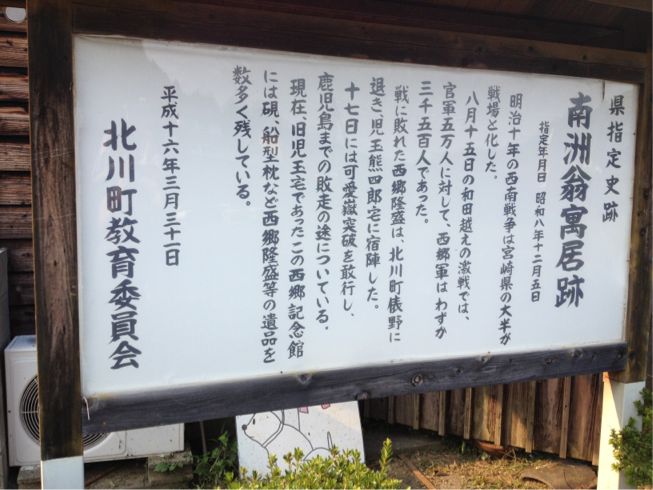 県指定史跡
南洲翁寓居跡
指定年月日 昭和八年十二月五日
明治十年の西南戦争は宮崎県の大半が
戦場と化した。
八月十五日の和田越えの激戦では、
官軍五万人に対して、西郷軍はわずか
三千五百人であった。
戦に敗れた西郷隆盛は、北川町俵野に
退き、児玉熊四郎宅に宿陣した。
十七日には可愛嶽突破を敢行し、
鹿児島までの敗走の途についている。
現在、旧児玉宅であったこの西郷記念館
には硯、船型枕など西郷隆盛等の遺品を
数多く残している。
平成十六年三月三十一日
北川町教育委員会